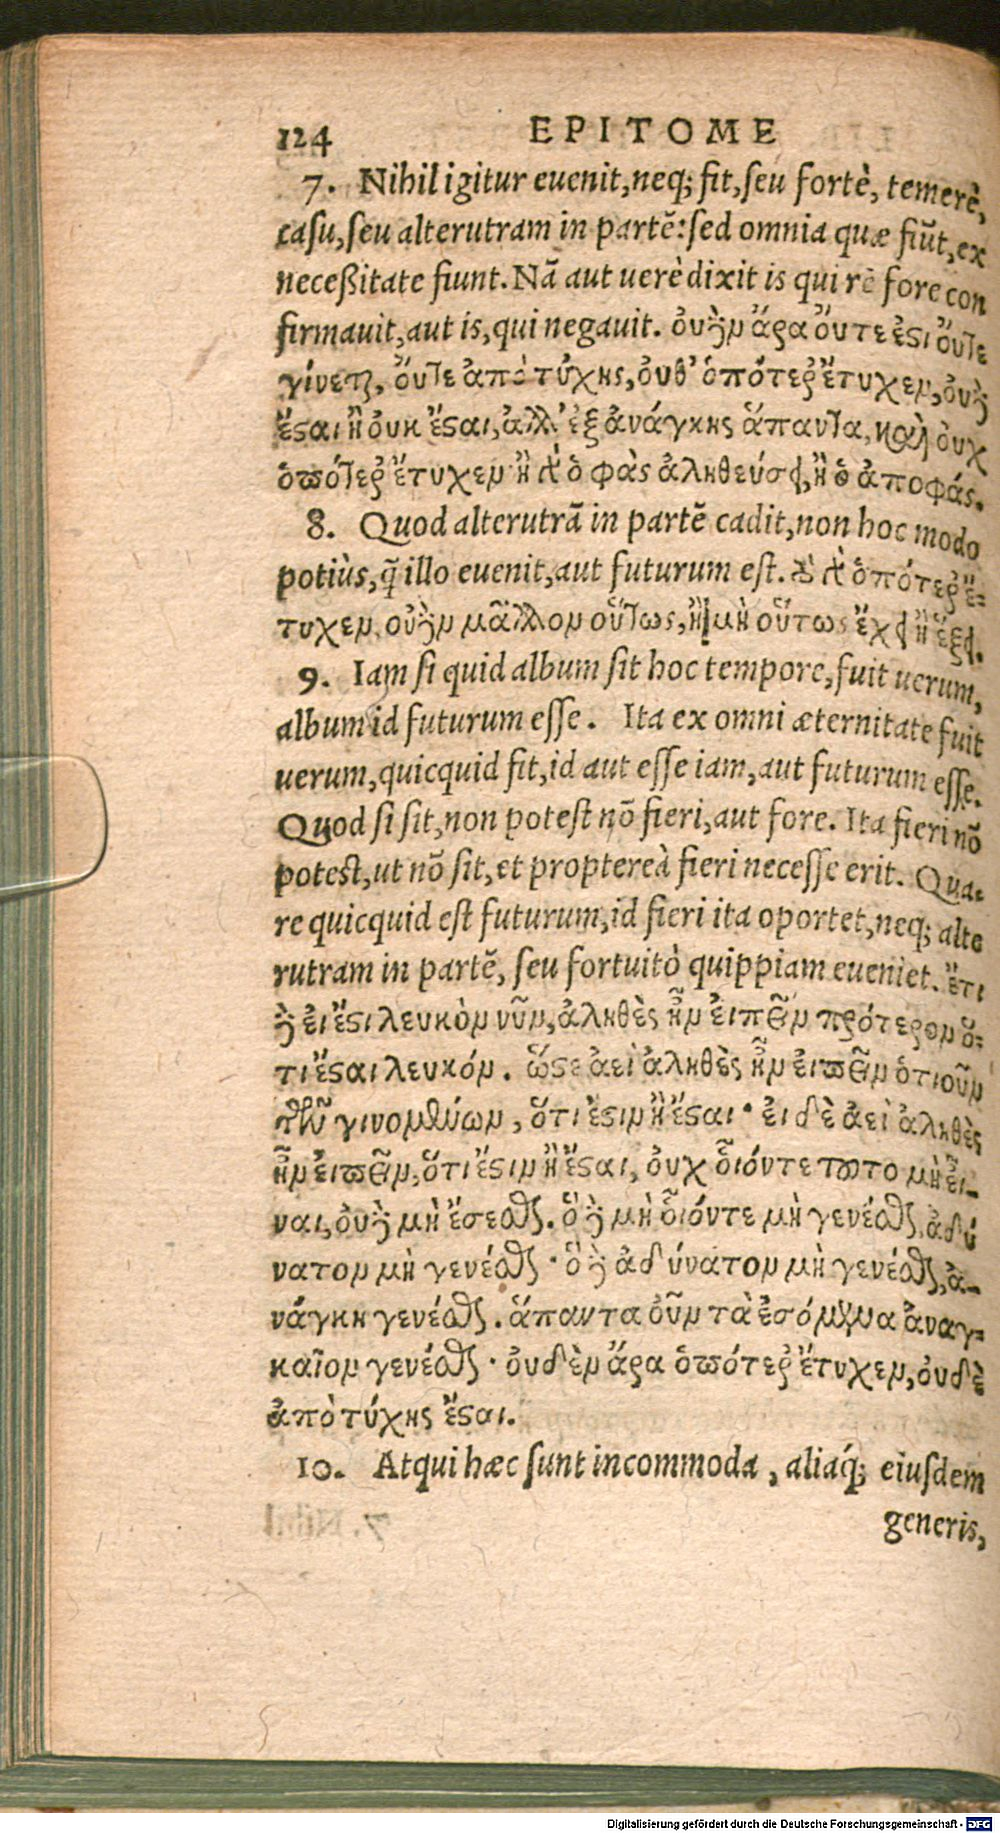 124 EPITOME
7. Nihil igitur euenit, neq; fit, seu fortè, temerè,
casu, seu alterutram in partẽ: sed omnia quæ fiũt, ex
neceßitate fiunt. Nã aut uerè dixit is qui rẽ fore con
firmauit, aut is, qui negauit. οὐδὲν ἄρα οὔτε ἐστι οὔτε
γίνεται, οὔτε ἀπὸ τύχης, οὐθ’ ὁπότερ’ ἔτυχεν, οὐδὲ
ἔσται ἢ οὐκ ἔσται, ἀλλ’ ἐξ ἀνάγκης ἅπαντα, καὶ οὐχ
ὁπότερ’ ἔτυχεν· ἢ γὰρ ὁ φὰς ἀληθεύσει, ἢ ὁ ἀποφάς.
8. Quod alterutrã in partẽ cadit, non hoc modo
potiùs, q̃ illo euenit, aut futurum est. τὸ γὰρ ὁπότερ’ ἔ-
τυχεν, οὐδὲν μᾶλλον οὕτως, ἢ μὴ οὕτως ἔχει ἢ ἕξει.
9. Iam si quid album sit hoc tempore, fuit uerum,
album id futurum esse. Ita ex omni æternitate fuit
uerum, quicquid fit, id aut esse iam, aut futurum esse.
Quod si sit, non potest nõ fieri, aut fore. Ita fieri nõ
potest, ut nõ sit, et proptereà fieri necesse erit. Qua-
re quicquid est futurum, id fieri ita oportet, neq; alte
rutram in partẽ, seu fortuitò quippiam eueniet. ἔτι
δὲ εἰ ἔστι λευκὸν νῦν, ἀληθὲς ἦν εἰπεῖν πρότερον ὅ-
τι ἔσται λευκόν. ὥστε ἀεὶ ἀληθὲς ἦν εἰπεῖν ὁτιοῦν
τῶν γινομένων, ὅτι ἐστιν ἢ ἔσται· εἰ δὲ ἀεὶ ἀληθὲς
ἦν εἰπεῖν, ὅτι ἔστιν ἢ ἔσται, οὐχ οἷόντε τοῦτο μὴ εἶ-
ναι, οὐδὲ μὴ ἔσεσθαι. ὃ δὲ μὴ οἷόντε μὴ γενέσθαι, ἀδύ
νατον μὴ γενέσθαι· ὃ δὲ ἀδύνατον μὴ γενέσθαι, ἀ-
νάγκη γενέσθαι. ἅπαντα οὖν τὰ ἐσόμενα ἀναγ-
καῖον γενέσθαι· οὐδὲν ἄρα ὁπότερ’ ἔτυχεν, οὐδὲ
ἀπὸ τύχης ἔσται.
10. Atqui hæc sunt incommoda, aliaq́; eiusdem
generis,
Digitalisierung gefördert durch die Deutsche Forschungsgemeinschaft - DFG